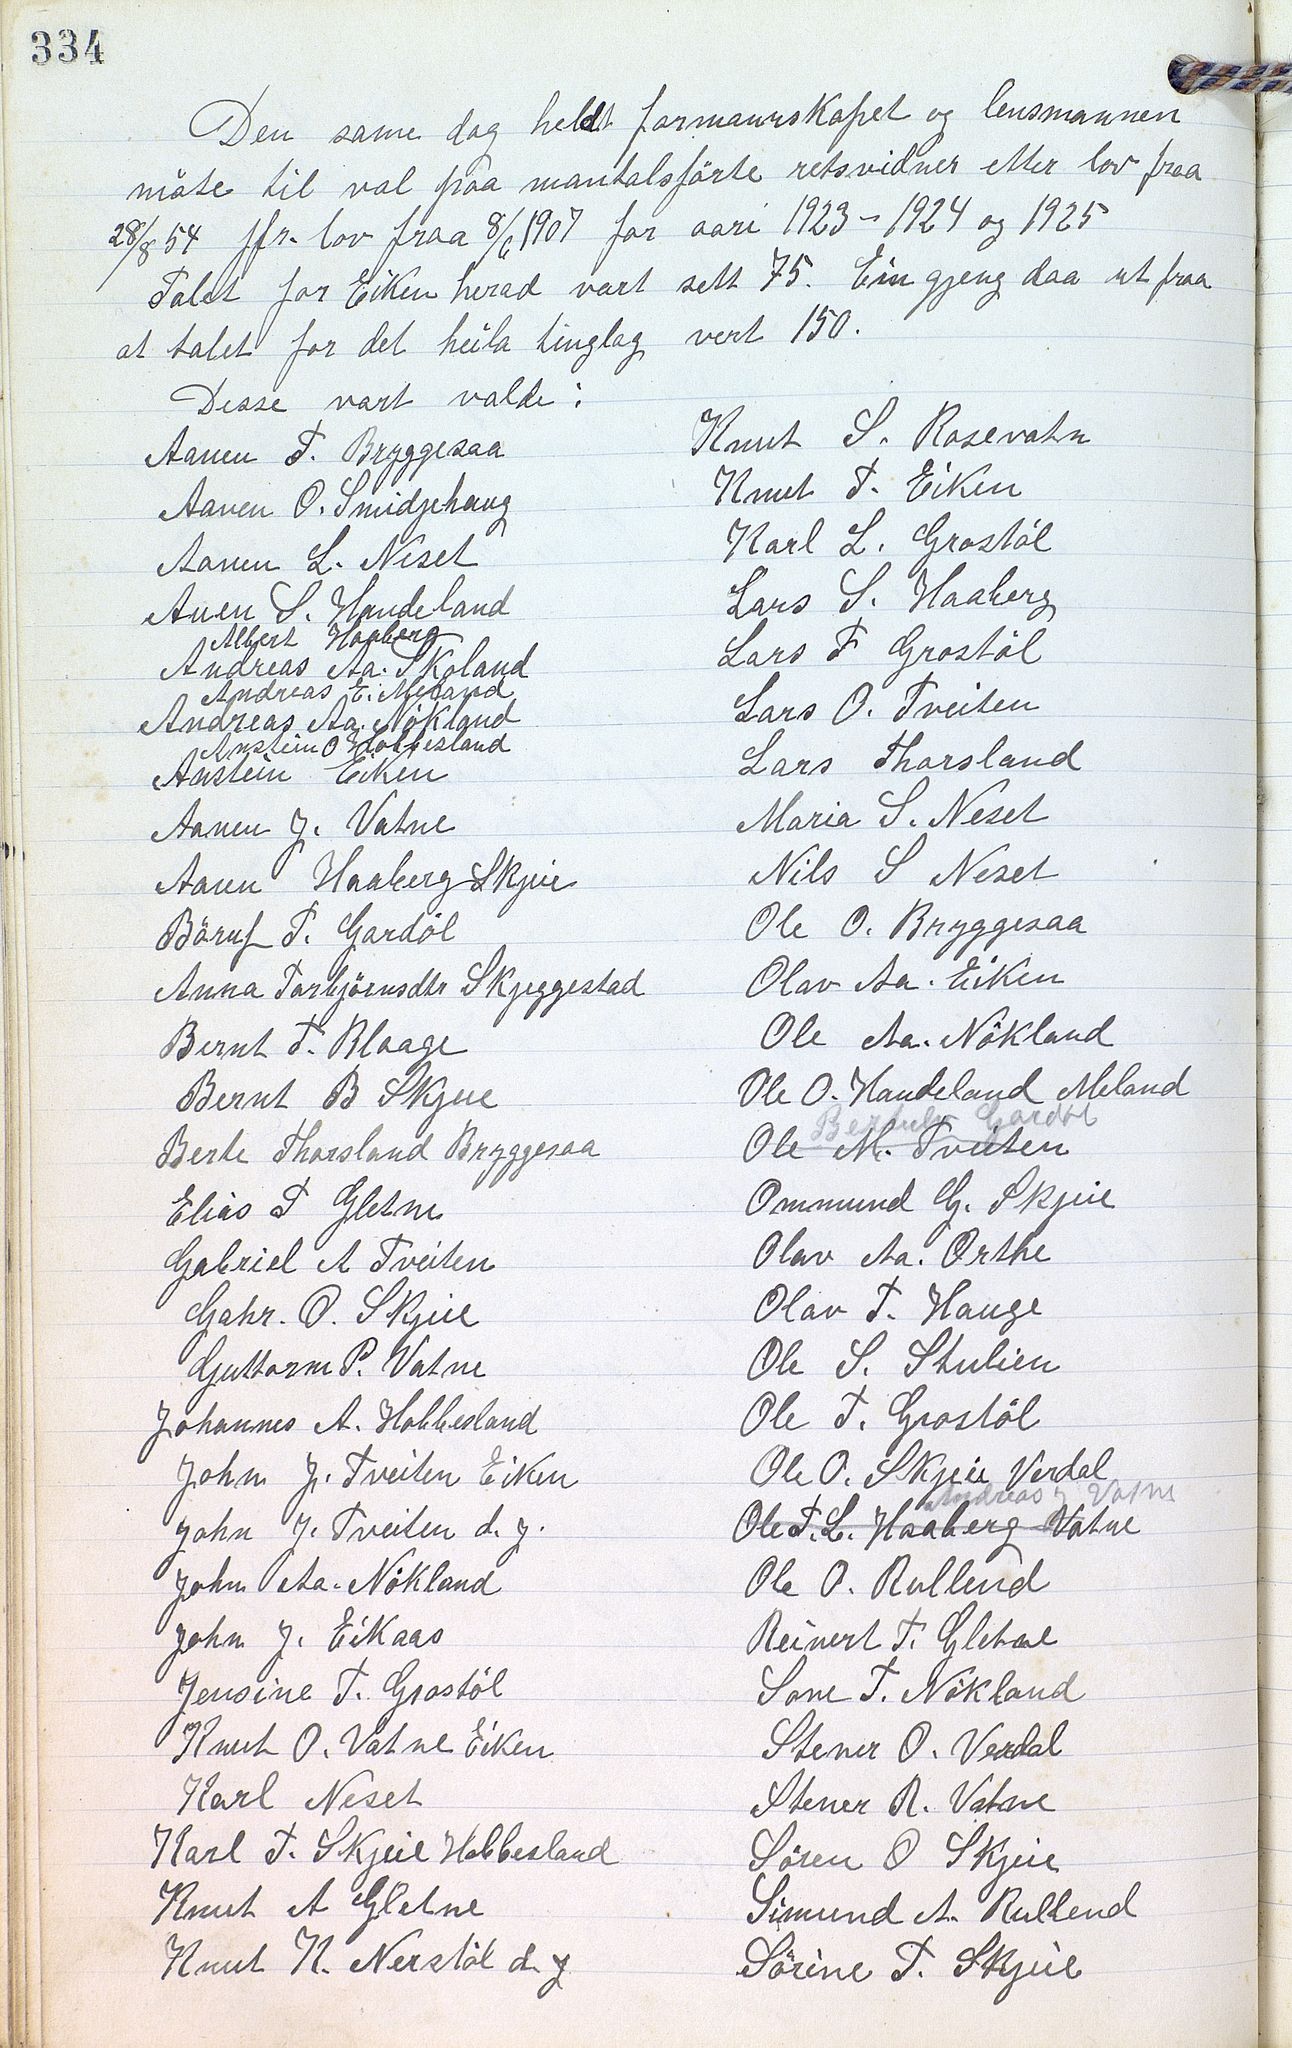 334
Den same dag heldt formannskapet og lensmannen
möte til val paa mantalsförte retsvidner etter lov fraa
28/8 54 jfr. lov fraa 8/6 1907 for aari 1923 - 1924 og 1925
Talet for Eiken herad vart sett 75. Ein gjeng daa ut fraa
at talet for det heila tinglag vert 150.
Desse vart valde:
Aanen T. Bryggesaa
Aanen O. Smidjehaug
Aanen L. Neset
Anen S. Handeland
Albert Haaberg
Andreas Aa. Skoland
Andreas E. Meland
Andreas Aa. Nökland
Anstein O Hobbesland
Anstein Eiken
Aanen J. Vatne
Aanen Haaberg Skjeie
Böruf T. Gardöl
Anna Torbjörnsdtr Skjeggestad
Bernt T. Blaage
Bernt B Skjeie
Berte Thorsland Bryggesaa
Elias T Gletne
Gabriel A Tveiten
Gahr. O. Skjeie
Guttorm P. Vatne
Johannes A. Hobbesland
John J. Tveiten Eiken
John J. Tveiten d. y.
John Aa. Nökland
John J. Eikaas
Jensine T. Grostöl
Knut O. Vatne Eiken
Karl Neset
Karl T. Skjeie Hobbesland
Knut A Gletne
Knut K. Nerstöl d. y
Knut S. Rosevatn
Knut T. Eiken
Karl L. Grostöl
Lars S. Haaberg
Lars T Grostöl
Lars O. Tveiten
Lars Thorsland
Maria S. Neset
Nils S Neset
Ole O. Bryggesaa
Olav Aa. Eiken
Ole Aa. Nökland
Ole O. Handeland Meland
Gardöl
Ole M. Tveiten
Ommund G. Skjeie
Olav Aa. Orthe
Olav T. Hauge
Ole S. Stulien
Ole T. Grostöl
Ole O. Skjeie Verdal
Andreas J Vatne
Ole T. L. Haaberg Vatne
Ole O. Rullend
Reinert T. Gletne
Sone T. Nökland
Stener O. Verdal
Stener R. Vatne
Sören O Skjeie
Simund A. Rullend
Sörine T. Skjeie